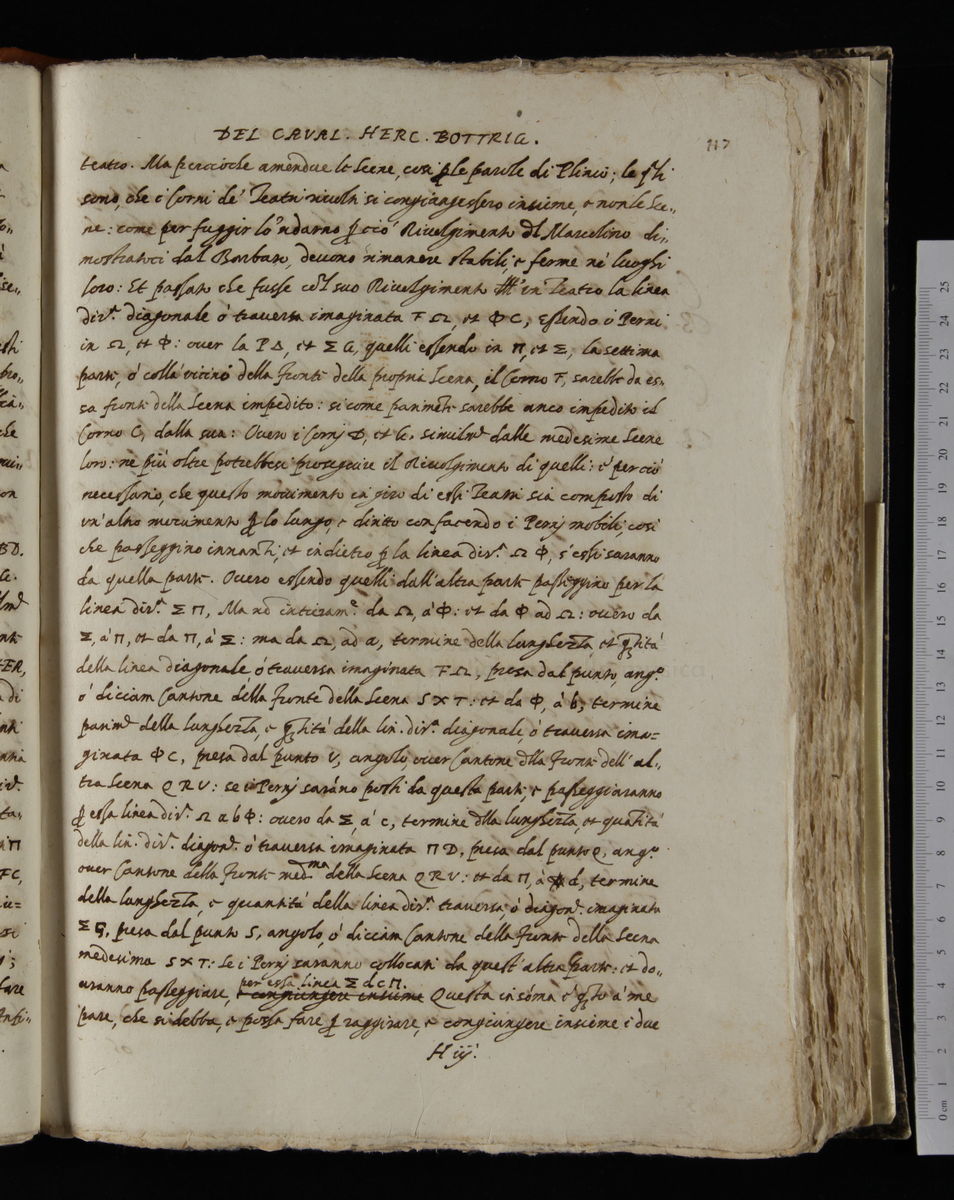 DEL CAVAL. HERC. BOTTRIG.
117
teatro. Ma percioche amendue le Scene, cosi ꝑ le parole di Plinio; le qͣli
sono, che i Corni de' Teatri rivolti si congiungessero insieme, e non le Sce„
ne: come per fuggir lo 'ndarno ꝑ ciò Rivolgimento dl Marcelino di„
mostratoci dal Barbaro, devono rimanere stabili e ferme ne' luoghi
loro: Et passato che fusse col suo Rivolgimento in Teatro la linea
divͣ. diagonale ò traversa imaginata F Ω, et Φ C, essendo i Perni
in Ω, et Φ: over la P Δ, et Σ G, quelli essendo in Π, et Σ, la settima
parte, ò colà vicino della fronte della propria Scena, il Corno F, sarebbe da es„
sa fronte della Scena impedito: si come parimēte sarebbe anco impedito il
Corno C, dalla sua: Overo i Cornj D, et G. similmͤ. dalle medesime Scene
loro: ne più oltre potrebbesi proseguire il Rivolgimento di quelli: è perciò
necessario, che questo movimento in giro di essi Teatri sia composto di
un' altro movimento ꝑ lo lungo, e diritto con facendo i Pernj mobili, così
che passeggino innanti, et indietro ꝑ la linea divͣ. Ω Φ, s' essi saranno
da quella parte. Overo essendo quelli dall' altra parte passeggino per la
linea divͣ. Σ Π, Ma nō interamͤ. da Ω, à Φ: et da Φ ad Ω: overo da
Σ, à Π, et da Π, à Σ: ma da Ω, ad a, termine della lunghezza, et qͣtità
della linea diagonale, ò traversa imaginata F Ω, presa dal punto, angͦ.
ò diciam Cantone della fronte della Scena S X T: et da Φ, à b, termine
parimͤ. della lunghezza, e qͣtità della lin. divͣ. diagonale, ò traversa ima=
ginata Φ C, presa dal punto V, angolo, over Cantone dlla fronte dell' al„
tra Scena Q R V: se i Pernj saranno posti da questa parte, e passeggiaranno
ꝑ essa linea divͣ. Ω a b Φ: overo da Σ, à c, termine dlla lunghezza, et quātità
della lin. divͣ. diagonͤ. ò traversa imaginata Π D, presa dal punto Q, angͦ.
over Cantone della fronte medͫͣ della Scena Q R V: et da Π, à d, termine
della lunghezza, e quantità della linea divͣ. traversa, ò diagonͤ. imaginata
Σ G, presa dal punto S, angolo, ò diciam Cantone della fronte della Scena
medesima S X T: Se i Pernj saranno collocati da quest' altra parte: et do„
per essa linea Σ d c Π.
vranno passeggiare, e congiungere insieme Questa in sōma è qͣto à me
pare, che si debba, e possa fare ꝑ raggirare, e congiungere insieme i due
H iij.